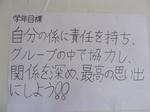 学年目標
自分の係に責任を持ち、
グループの中で協力し、
関係を深め、最高の思い出
にしよう!!